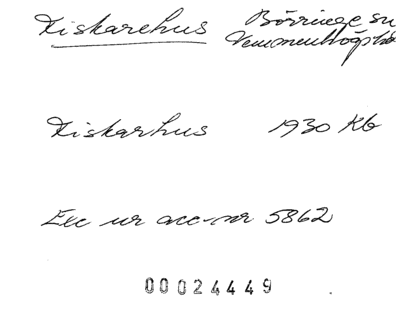 Fiskarehus Börringe sn
Vemmenhögs hd
Fiskarhus 1930 Kb
Exc ur acc-nr 5862
00024449